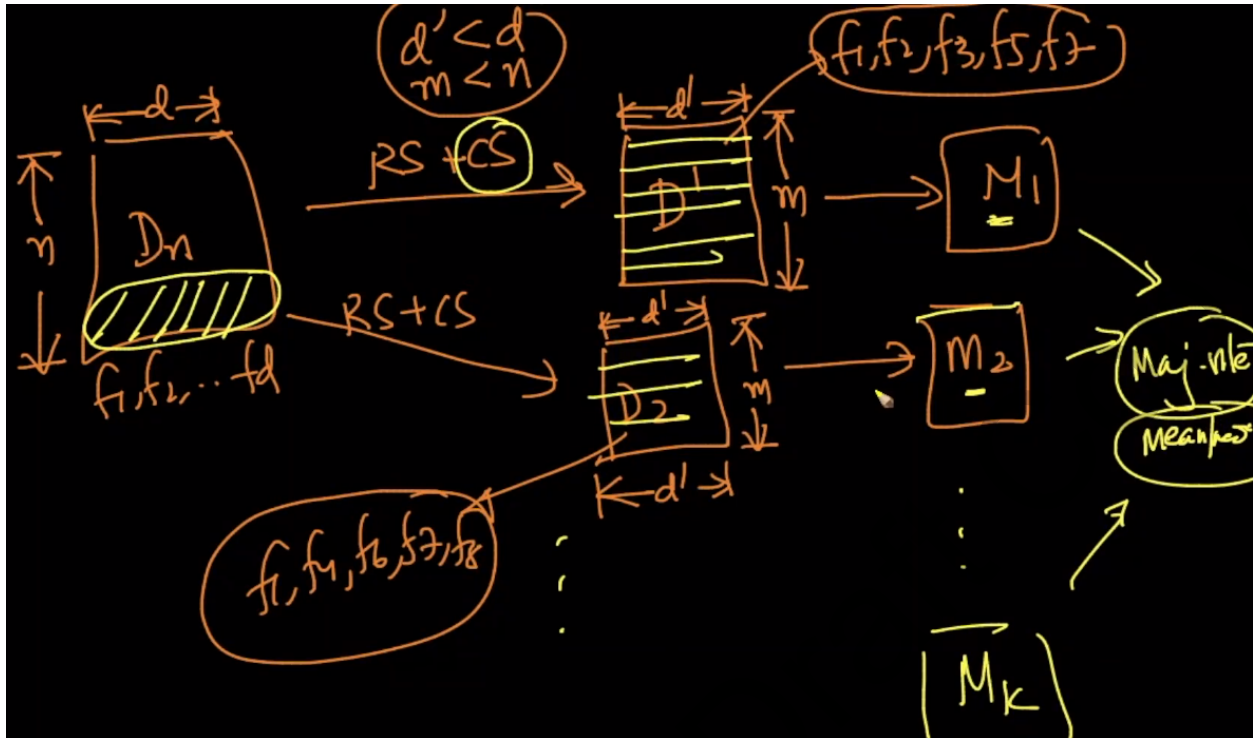 d' < d
m < n
f1, f2, f3, f5, f7
d
n
Dn
f1, f2, ... fd
RS + CS
d'
D'
m
M1
RS + CS
d'
D2
m
d'
M2
Maj. vote
f1, f4, f6, f7, f8
MK